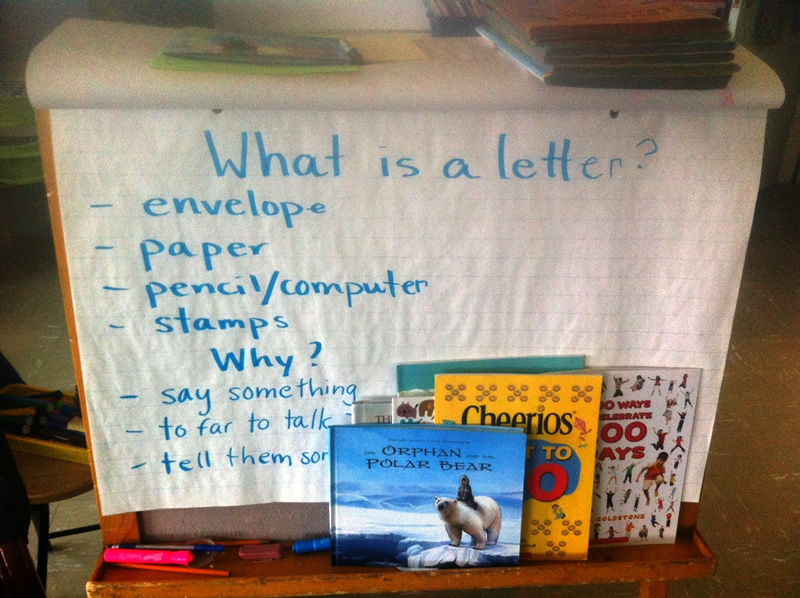 What is a letter?
- envelope
- paper
- pencil/computer
- stamps
Why?
- say something
- to far to talk
- tell them
THE
Cheerios
TO
THE ORPHAN AND THE
POLAR BEAR
WAYS
CELEBRATE
100
DAYS
GOLDSTONE